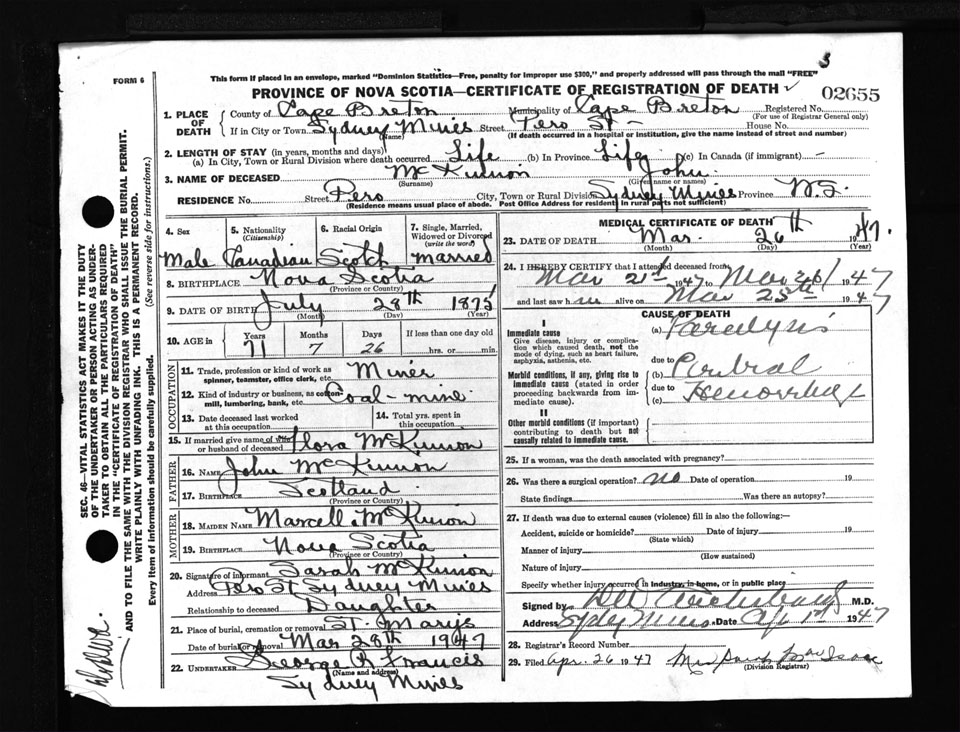 This form if placed in an envelope, marked "Dominion Statistics—Free, penalty for improper use $300," and properly addressed will pass through the mail "FREE"
FORM 6
PROVINCE OF NOVA SCOTIA—CERTIFICATE OF REGISTRATION OF DEATH
02655
1. PLACE OF DEATH County of Cape Breton Municipality of Cape Breton Registered No.
(For use of Registrar General only)
If in City or Town Sydney Mines Street Pero St - House No.
(Name) (If death occurred in a hospital or institution, give the name instead of street and number)
2. LENGTH OF STAY (in years, months and days)
(a) In City, Town or Rural Division where death occurred Life (b) In Province Life (c) In Canada (if immigrant) -
3. NAME OF DECEASED McKinnon John
(Surname) (Given name or names)
RESIDENCE No. Street Pero City, Town or Rural Division Sydney Mines Province N.S.
(Residence means usual place of abode. Post Office Address for residents in rural parts not sufficient)
4. Sex 5. Nationality (Citizenship) 6. Racial Origin 7. Single, Married, Widowed or Divorced (write the word)
Male Canadian Scotch married
8. BIRTHPLACE Nova Scotia
(Province or Country)
9. DATE OF BIRTH July 28th 1875
(Month) (Day) (Year)
10. AGE in Years Months Days If less than one day old
71 7 26 hrs. or min.
OCCUPATION
11. Trade, profession or kind of work as spinner, teamster, office clerk, etc. Miner
12. Kind of industry or business, as cotton-mill, lumbering, bank, etc. Coal-mine
13. Date deceased last worked at this occupation
14. Total yrs. spent in this occupation
15. If married give name of wife or husband of deceased Flora McKinnon
FATHER
16. Name John McKinnon
17. Birthplace Scotland
(Province or Country)
MOTHER
18. Maiden Name Marcell McKinnon
19. Birthplace Nova Scotia
(Province or Country)
20. Signature of informant Sarah McKinnon
Address Pero St Sydney Mines
Relationship to deceased Daughter
21. Place of burial, cremation or removal St. Marys
Date of burial or removal Mar 28th 1947
22. Undertaker George R Francis
(Name and address)
Sydney Mines
MEDICAL CERTIFICATE OF DEATH
23. DATE OF DEATH Mar. 26th 1947.
(Month) (Day) (Year)
24. I HEREBY CERTIFY that I attended deceased from
Mar 21st 1947 to Mar 26 1947
and last saw him alive on Mar 25th 1947
CAUSE OF DEATH
I
Immediate cause
Give disease, injury or complication which caused death, not the mode of dying, such as heart failure, asphyxia, asthenia, etc.
(a) Paralysis
due to
Morbid conditions, if any, giving rise to immediate cause (stated in order proceeding backwards from immediate cause).
(b) Cerebral
due to
(c) Hemorrhage
II
Other morbid conditions (if important) contributing to death but not causally related to immediate cause.
25. If a woman, was the death associated with pregnancy?
26. Was there a surgical operation? no Date of operation 19
State findings Was there an autopsy?
27. If death was due to external causes (violence) fill in also the following:—
Accident, suicide or homicide? Date of injury 19
(State which)
Manner of injury
(How sustained)
Nature of injury
Specify whether injury occurred in industry, in home, or in public place
Signed by M.D.
Address Sydney Mines Date Apr 1st 1947
28. Registrar's Record Number
29. Filed Apr. 26 1947 Mrs Isaac
(Division Registrar)
SEC. 46—VITAL STATISTICS ACT MAKES IT THE DUTY
OF THE UNDERTAKER OR PERSON ACTING AS UNDER-
TAKER TO OBTAIN ALL THE PARTICULARS REQUIRED
IN THE "CERTIFICATE OF REGISTRATION OF DEATH"
AND TO FILE THE SAME WITH THE DIVISION REGISTRAR WHO SHALL ISSUE THE BURIAL PERMIT.
WRITE PLAINLY WITH UNFADING INK. THIS IS A PERMANENT RECORD.
Every item of information should be carefully supplied. (See reverse side for instructions.)